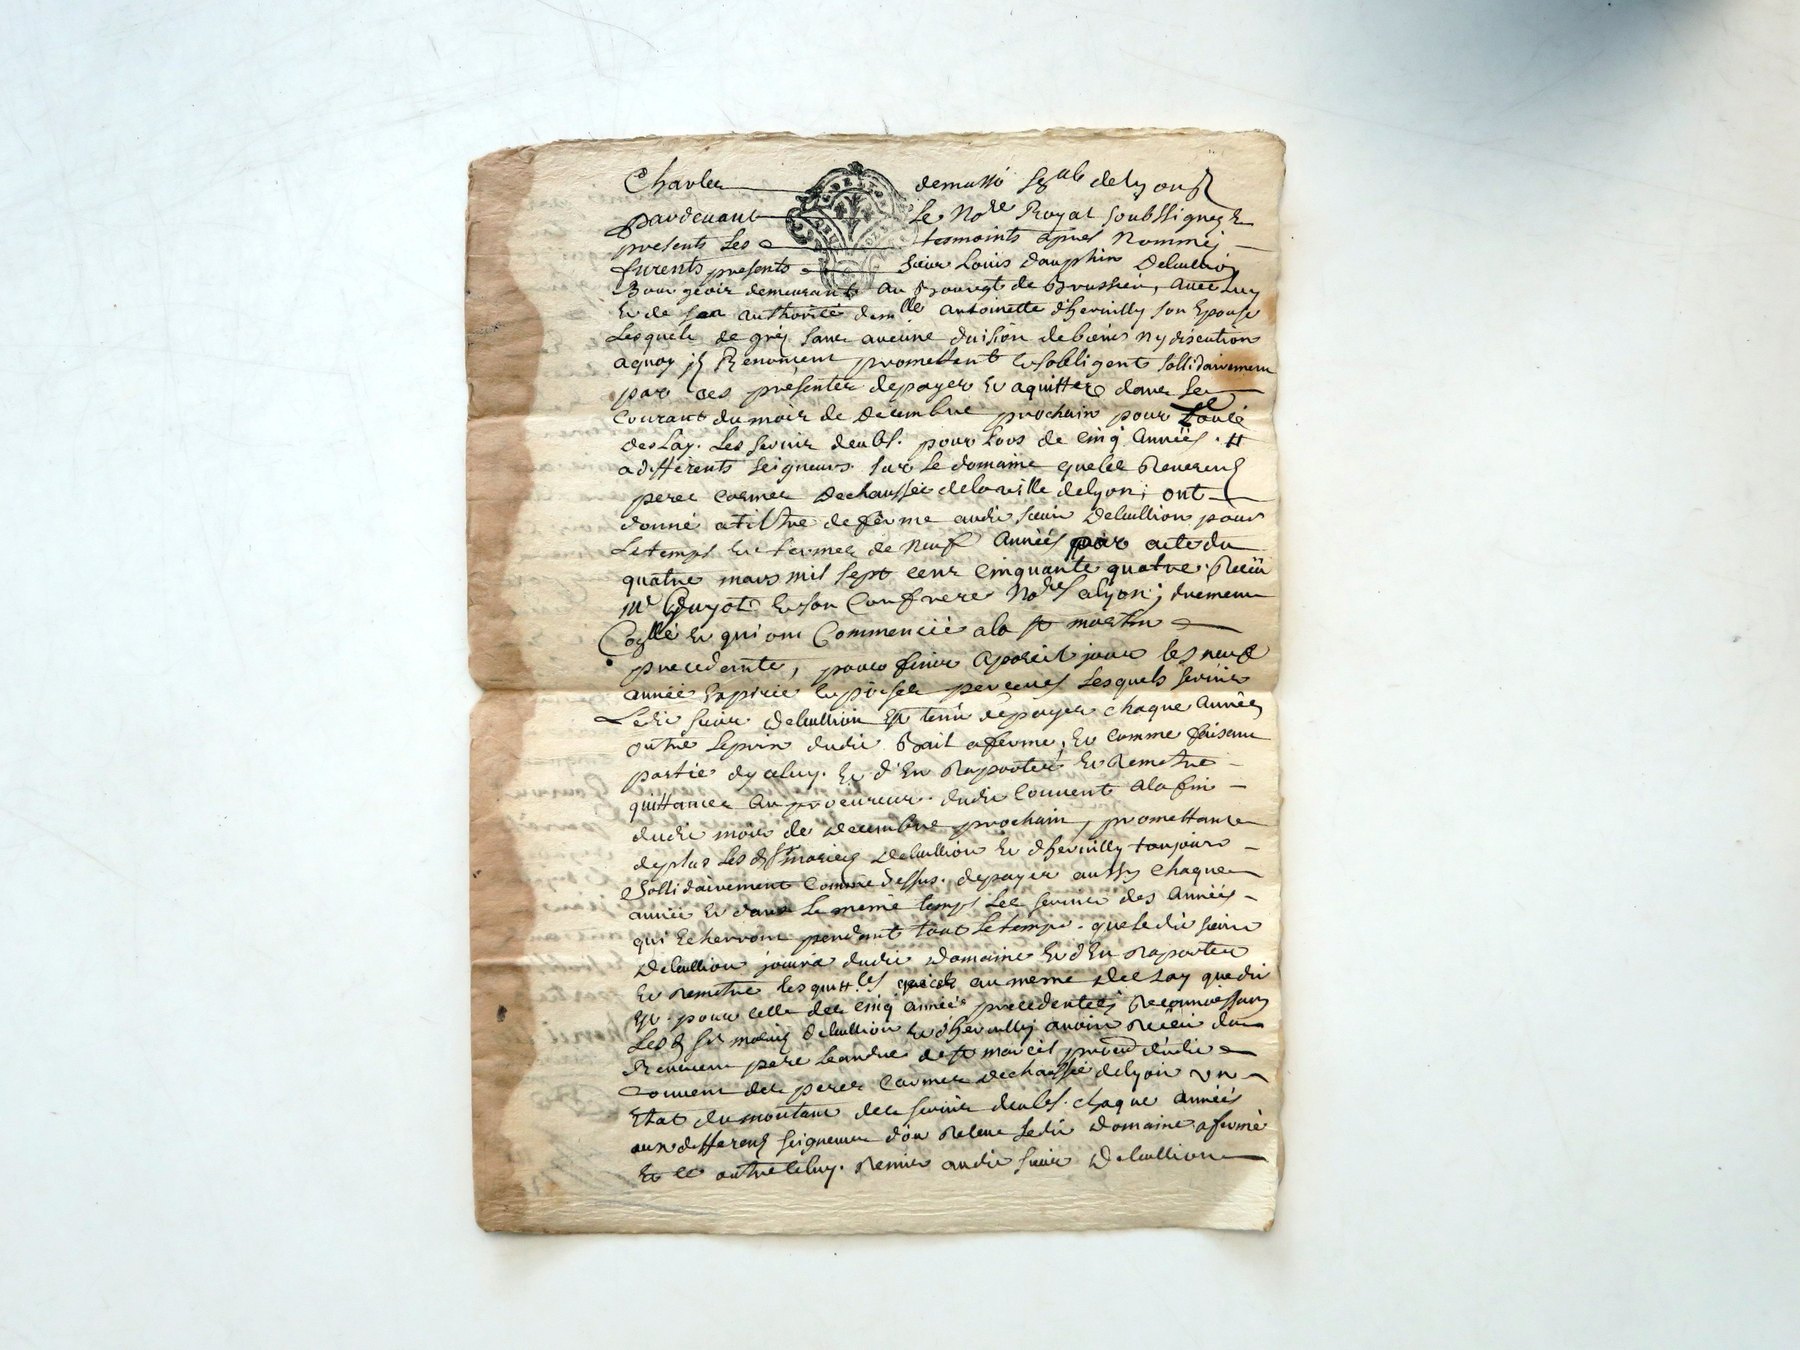 Charles demasso seg.al de lyon
pardevant Le No.re Royal soubsigné &
presents Les tesmoints apres Nommés
furents presents sieur Louis dauphin Debullion
Bourgeois demeurant au Bourgt de Brussieu, avec Luy
Et de son authorité dem.lle antoinette d'hervilly son Epouse
Lesquels de gré sans aucune division de biens ny discution
aquoy ils Renoncent promettent & sobligent sollidairement
par ces presentes depayer Et aquitter dans Le
Courant du mois de decembre prochain pour
Les servis deubs. pour Lors de cinq années. #
adifférents seigneurs sur Le domaine que les Reverends
peres Carmes dechaussés dela ville delyon; ont
donné atiltre deferme audit sieur Debullion pour
Letemps Et termes de Neuf Années par acte du
quatre mars mil sept cent Cinquante quatre. Reçu
M.e Guyot Et son Confrere No.res alyon; duement
Co.llé Et qui ont Commencée ala st martin
precedente, pour finir apareil jour les neuf
année Expirée Lesquels servis
Ledit sieur Debullion Est tenu depayer chaque Années
outre Leprix dudit Bail aferme, Et Comme faisant
partie dyceluy. Et d'En Raporter Et Remetre
quittances au procureur dudit Couvent alafin
dudit mois de decembre prochain, promettant
deplus Les d. mariés Debullion Et d'hervilly toujours
Sollidairement Comme dessus. depayer aussy chaque
année Et dans Le meme temps Les servis des Années
qui Echerront pendant tout Letemps. que Ledit sieur
Debullion jouira dudit Domaine Et d'En Raporter
Et Remetre les quitt.es au meme delay que dit
Est. pour celle des cinq années precedentes Reconnoissant
Les d. mariés Debullion Et d'hervilly avoir Reçu du
Reverend pere Leandre de st marcel dudit
Couvent des peres Carmes dechaussé delyon un
Etat du montant des servis deubs. chaque années
aux differents seigneurs d'ou Releve Ledit domaine afermé
Et audit sieur Debullion